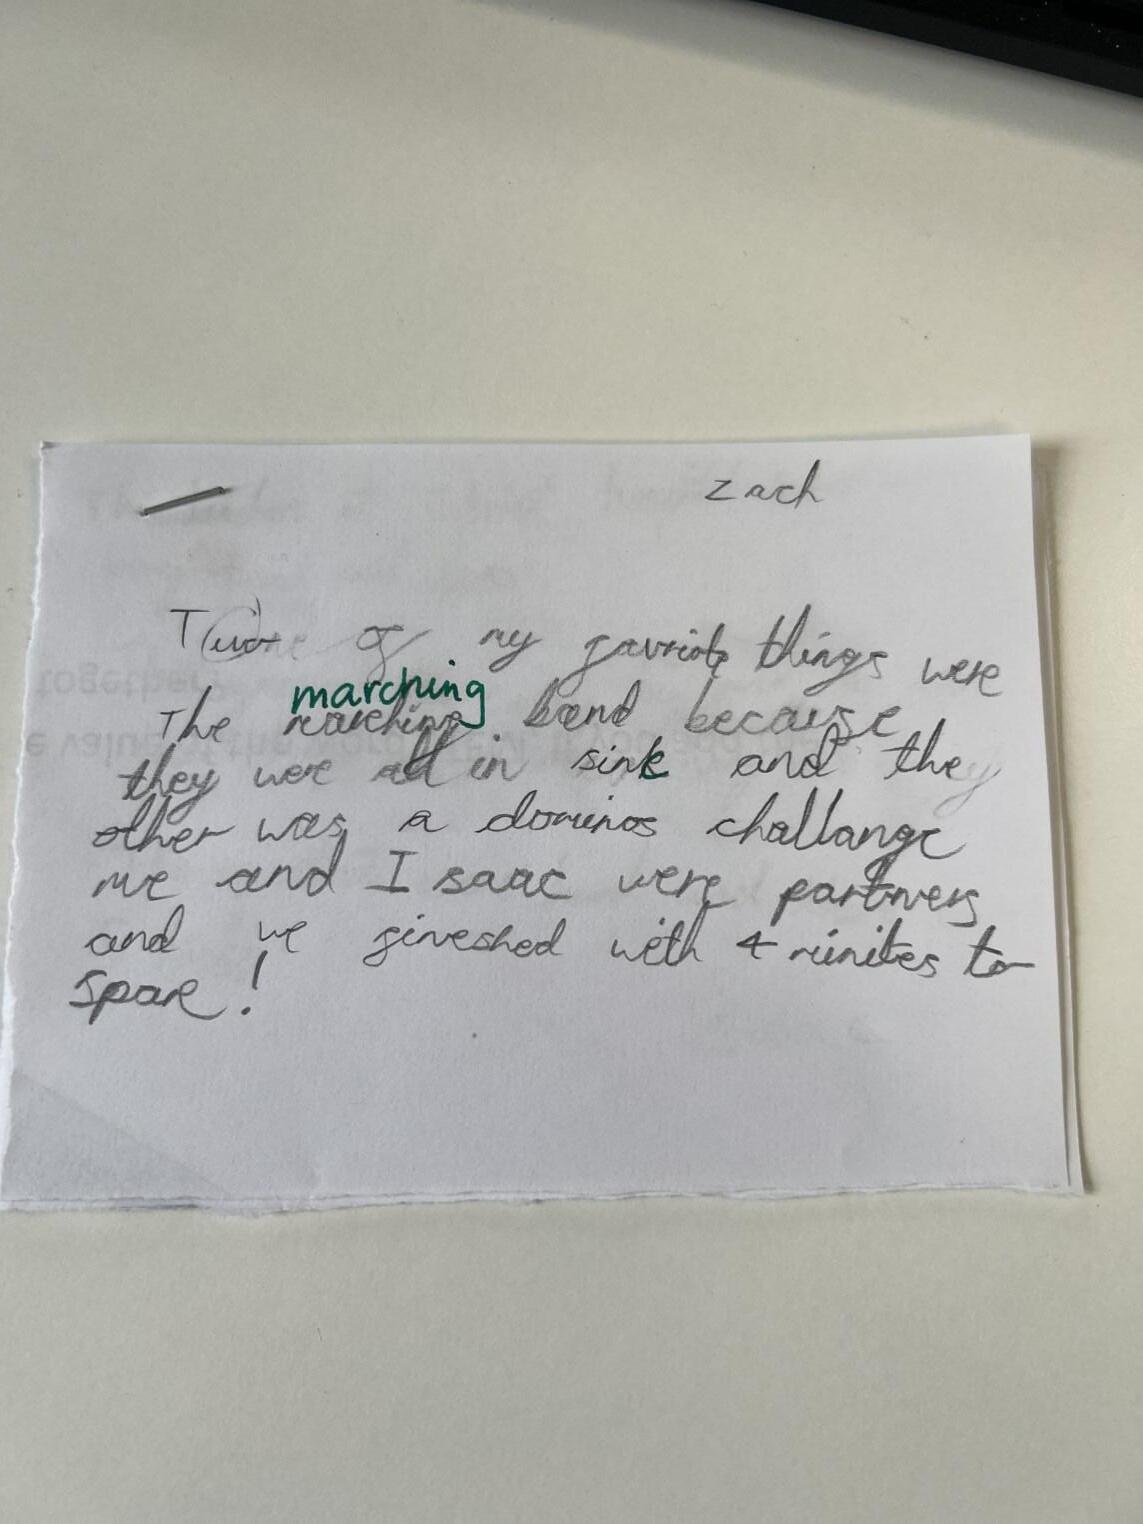 Zach
Two of my favriote things were
The marching band because
they were all in sink and the
other was a dominos challange
me and Isaac were partners
and we fineshed with 4 minites to
spare!
together
e value